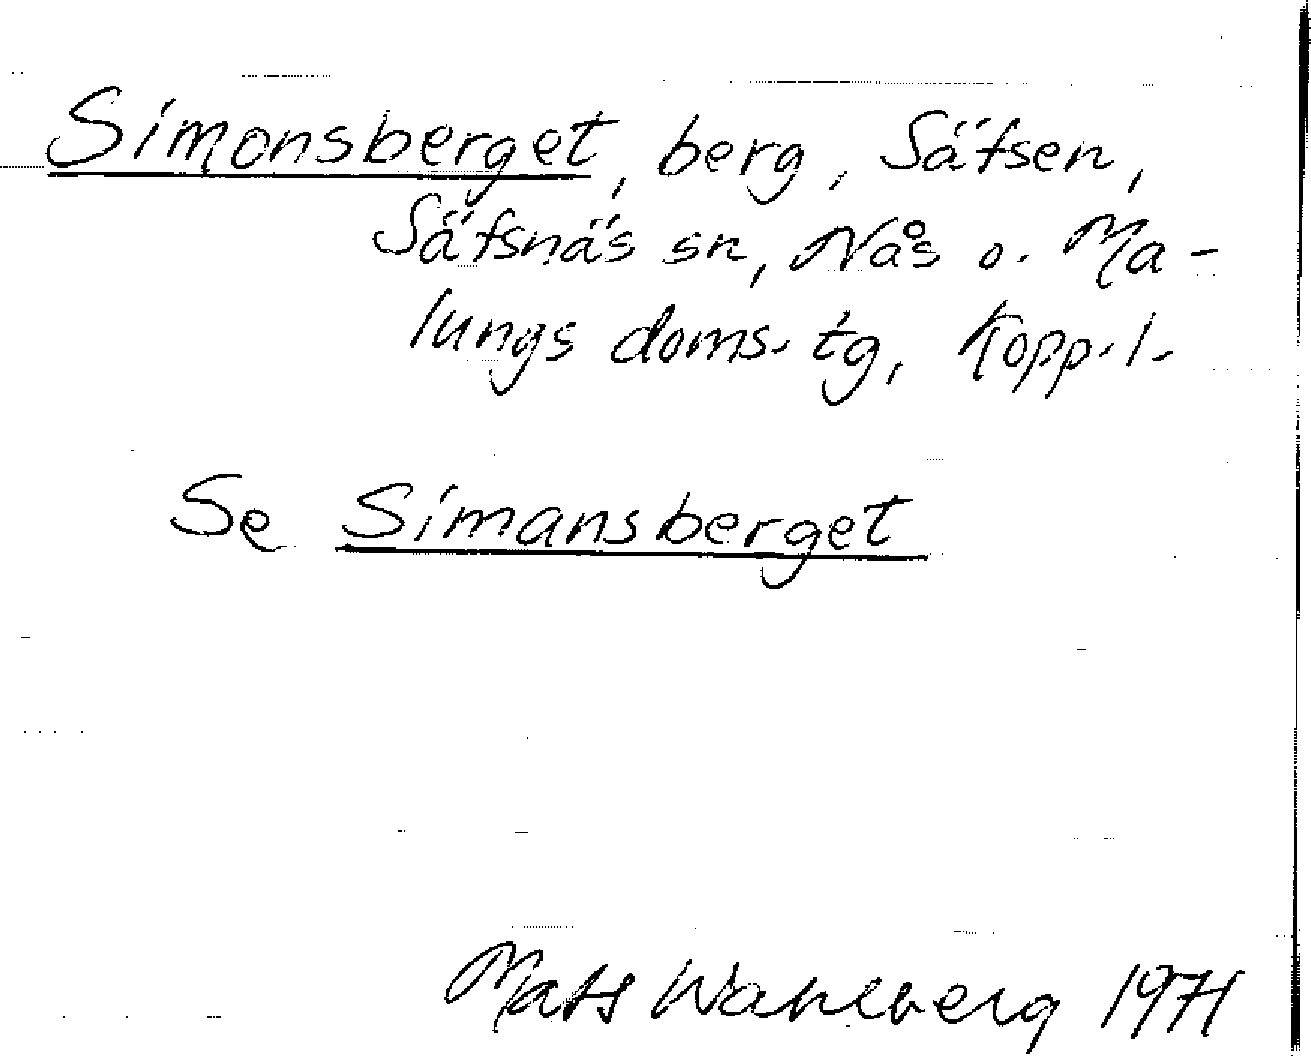 Simonsberget, berg, Säfsen,
Säfsnäs sn, Nås o. Ma-
lungs doms. tg, Kopp. l.
Se Simansberget
Mats Wahlberg 1971